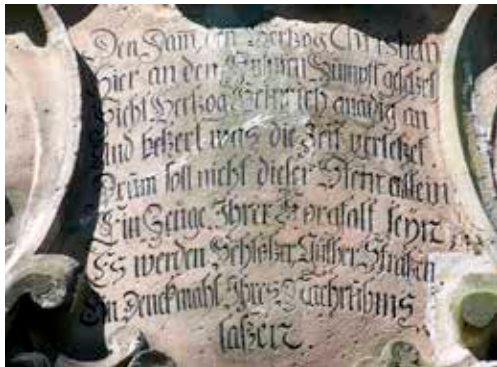 Den Dam, den Hertzog Christian
Hier an den Sumpff gesäzet
Sieht Hertzog Heinrich gnädig an
und beßert was die Zeit verletzet.
Drum soll nicht dieser Stein allein
Ein Zeuge Ihrer Sorgfalt seyn,
Es werden Schlößer, Güther Straßen
Ein Denckmahl Ihres Nachruhms
laßen.